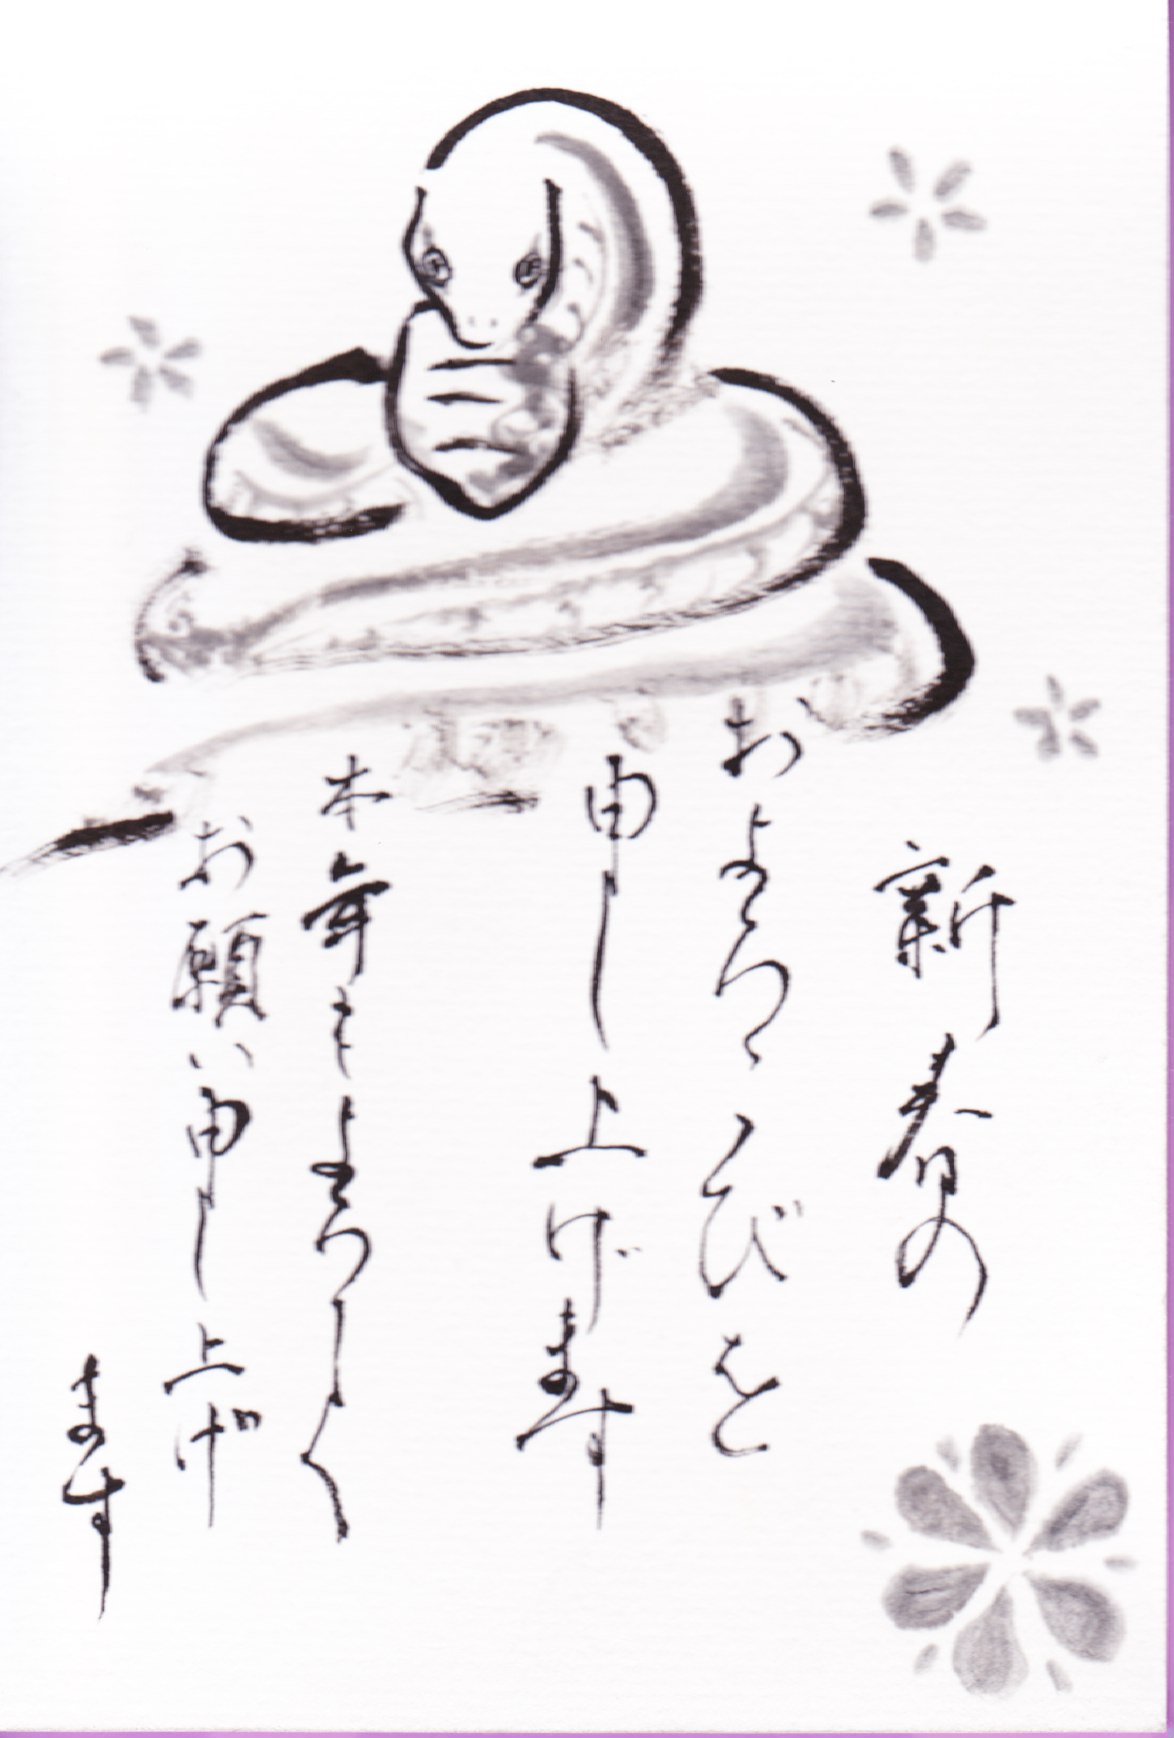 新春の
およろこびを
申し上げます
本年もよろしく
お願い申し上げ
ます